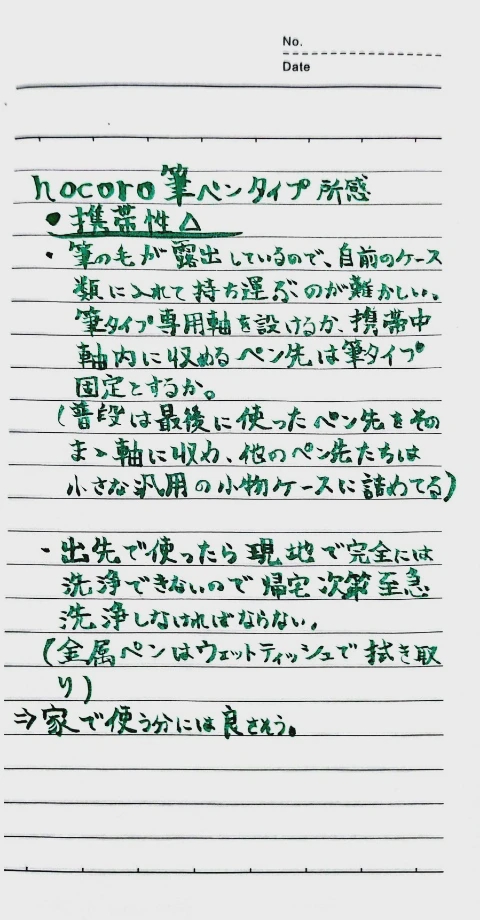 No.
Date
hocoro筆ペンタイプ所感
●携帯性△
・筆の毛が露出しているので、自前のケース
類に入れて持ち運ぶのが難かしい。
筆タイプ専用軸を設けるか、携帯中
軸内に収めるペン先は筆タイプ
固定とするか。
(普段は最後に使ったペン先をその
まゝ軸に収め、他のペン先たちは
小さな汎用の小物ケースに詰めてる)
・出先で使ったら現地で完全には
洗浄できないので帰宅次第至急
洗浄しなければならない。
(金属ペンはウェットティッシュで拭き取
り)
⇒家で使う分には良さそう。